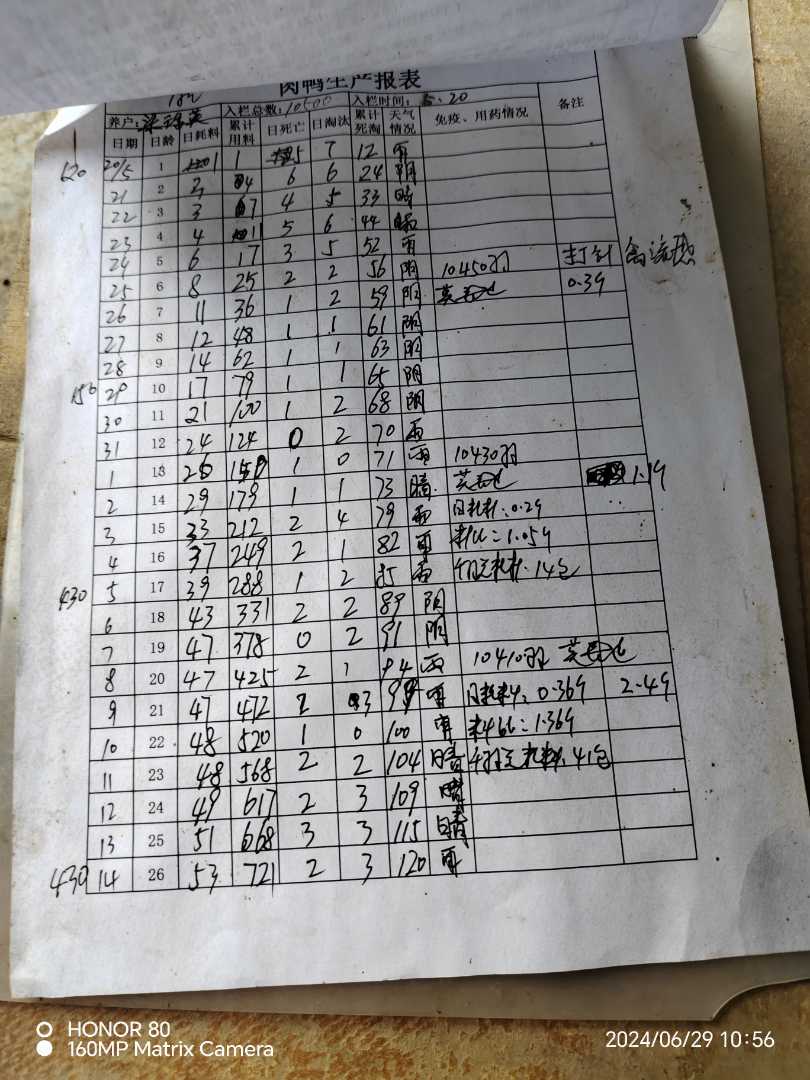 肉鸭生产报表
养户: 入栏总数: 10500 入栏时间: 5.20
日期 日龄 日耗料 累计用料 日死亡 日淘汰 累计死淘 天气情况 免疫、用药情况 备注
120 20/5 1 1 1 5 7 12 雨
21 2 2 4 6 6 24 阴
22 3 3 7 4 5 33 晴
23 4 4 11 5 6 44
24 5 6 17 3 5 52 雨 打针 禽流感
25 6 8 25 2 2 56 阴 10450羽 0.39
26 7 11 36 1 2 59 阴
27 8 12 48 1 1 61 阴
28 9 14 62 1 1 63 阴
150 29 10 17 79 1 1 65 阴
30 11 21 100 1 2 68 阴
31 12 24 124 0 2 70 雨
1 13 26 150 1 0 71 雨 10430羽
2 14 29 179 1 1 73 晴 1.19
3 15 33 212 2 4 79 雨 日耗料:0.29
4 16 37 249 2 1 82 雨 料比:1.059
430 5 17 39 288 1 2 85 雨 14包
6 18 43 331 2 2 89 阴
7 19 47 378 0 2 91 阴
8 20 47 425 2 1 94 雨 10410羽
9 21 47 472 2 3 99 雨 日耗料:0.369 2.49
10 22 48 520 1 0 100 雨 料比:1.369
11 23 48 568 2 2 104 晴 41包
12 24 49 617 2 3 109 晴
13 25 51 668 3 3 115 晴
430 14 26 53 721 2 3 120 雨
HONOR 80
160MP Matrix Camera
2024/06/29 10:56